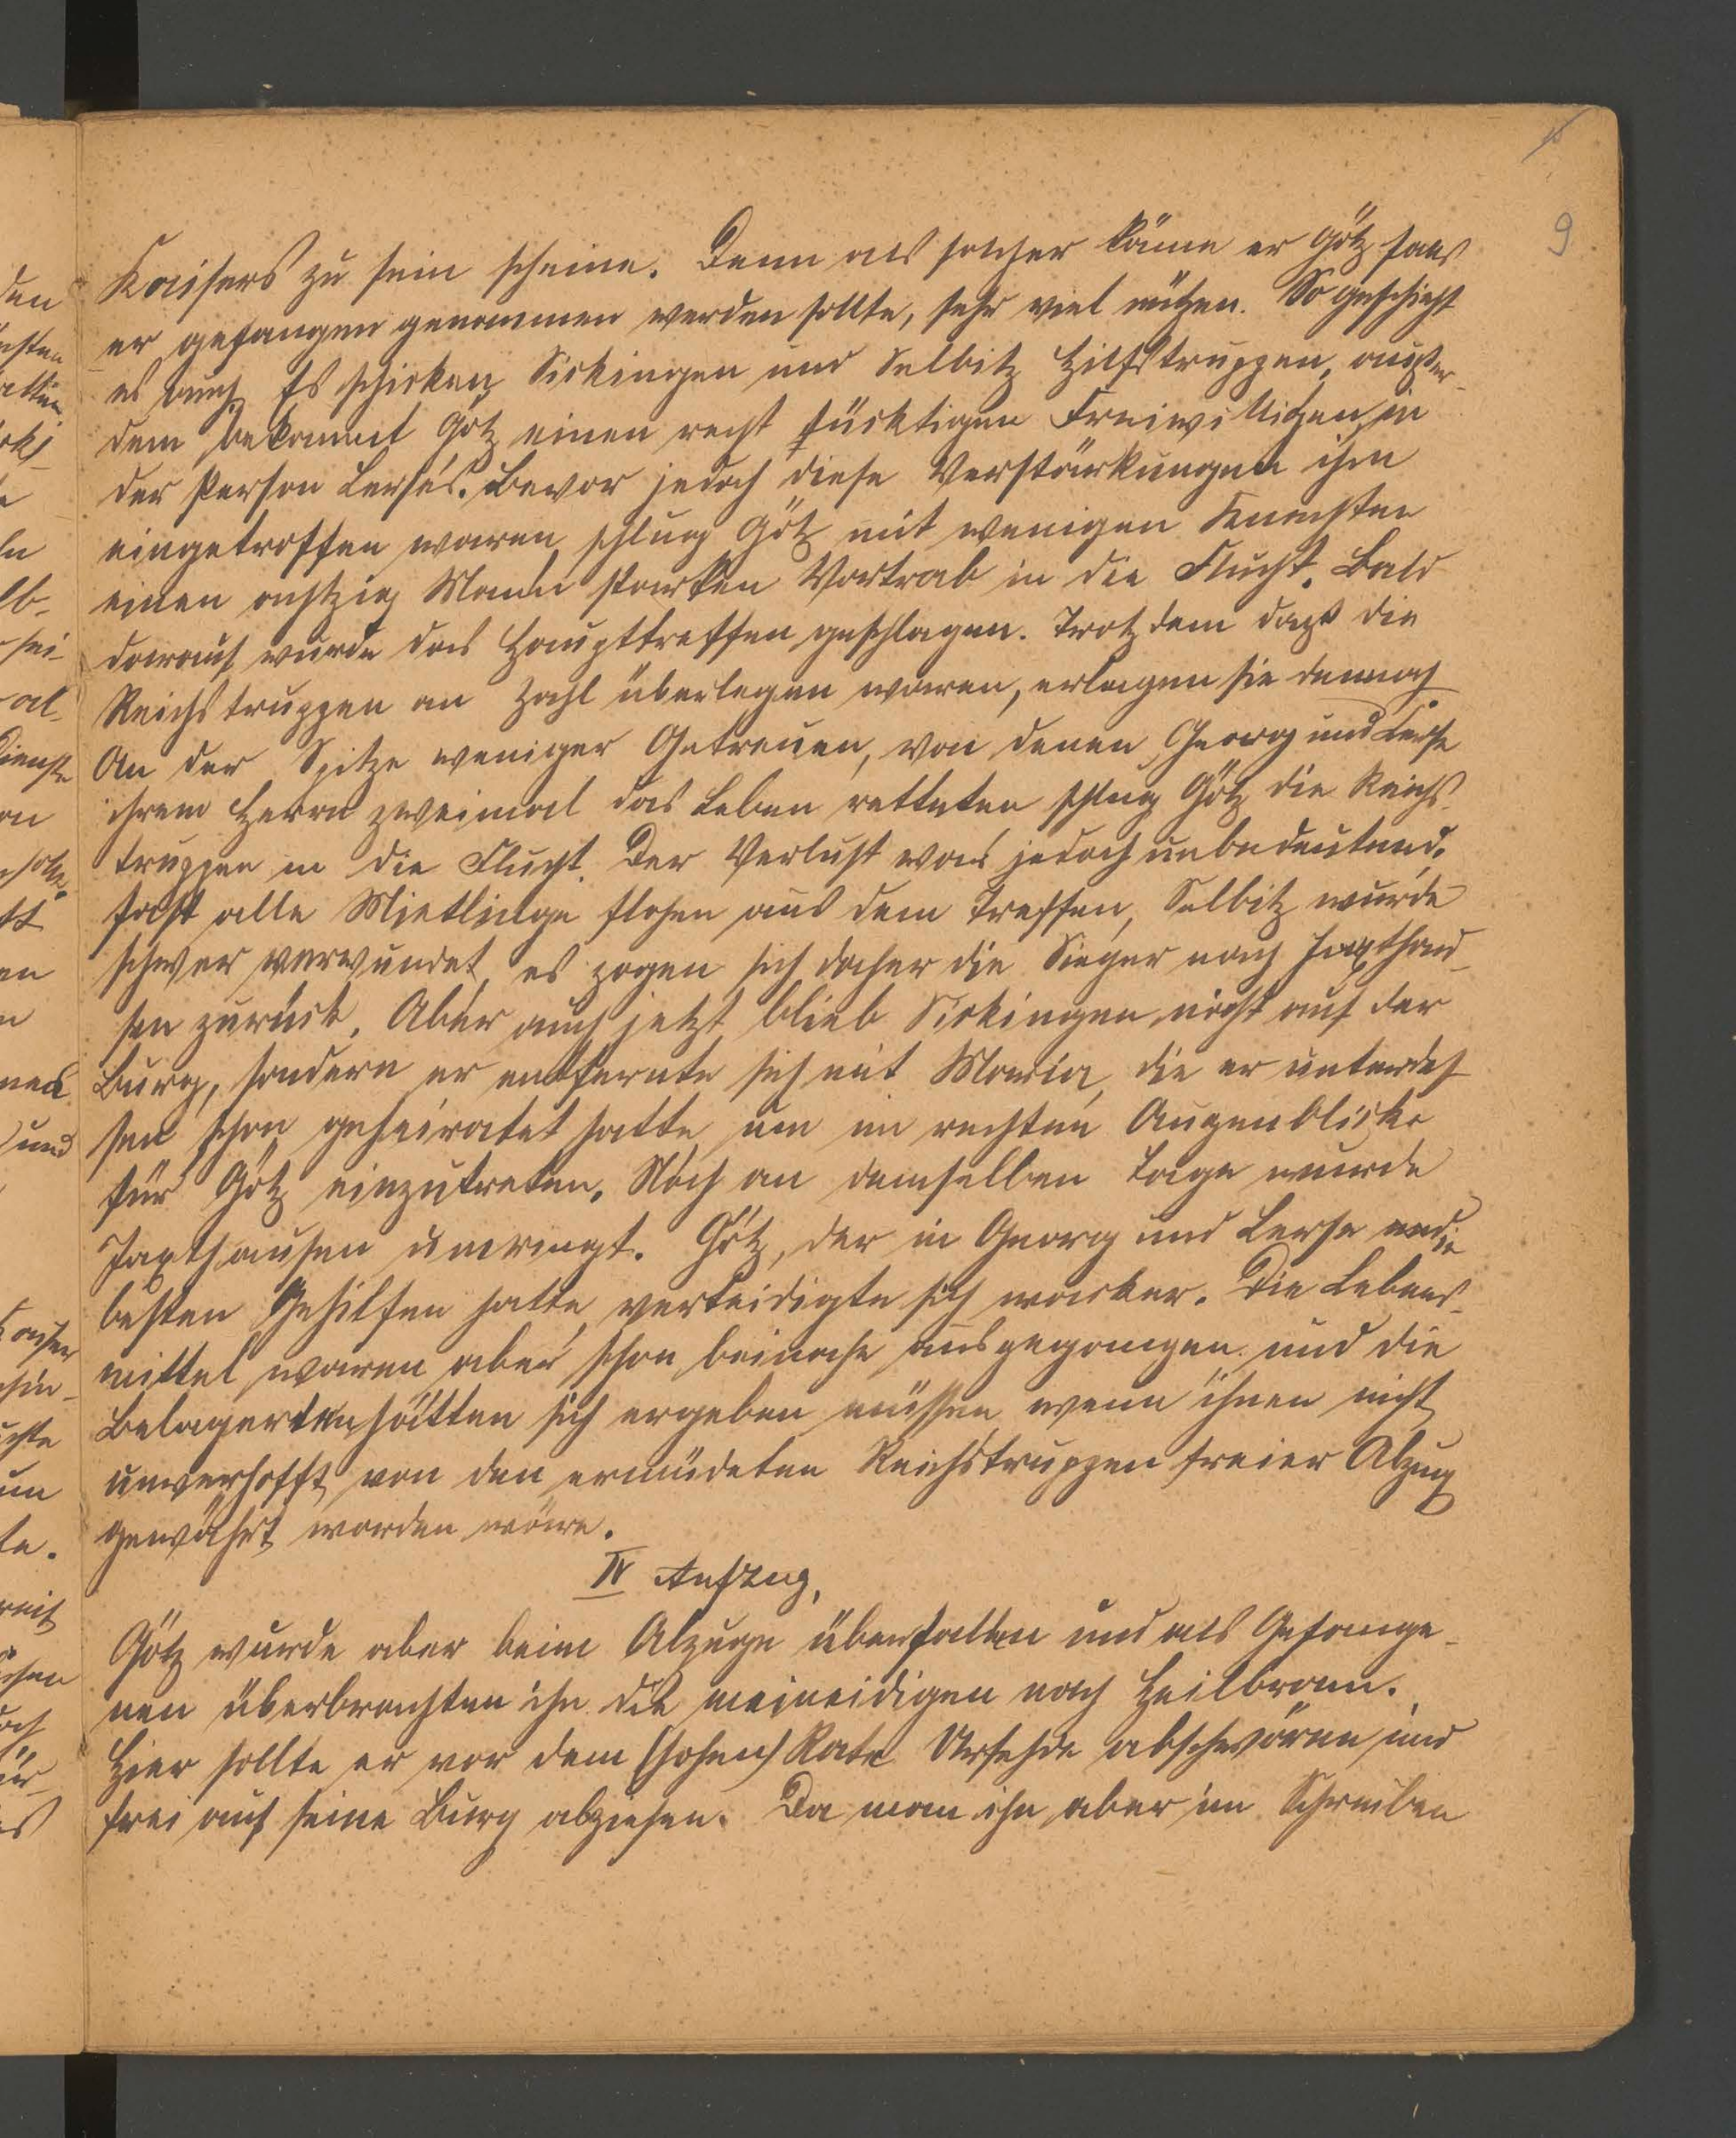 9
Kaisers zu sein scheine. Denn als solcher käme er Götz falls
er gefangen genommen werden sollte, sehr viel nützen. So geschieht
es auch. Es schicken Sickingen und Selbitz Hilfstruppen, außer-
dem bekommt Götz einen recht tüchtigen Freiwilligen in
der Person Lerses. Bevor jedoch diese Verstärkungen ihm
eingetroffen waren schlug Götz mit wenigen Knechten
einen achtzig Mann starken Vortrab in die Flucht. Bald
darauf wurde das Haupttreffen geschlagen. Trotzdem daß die
Reichstruppen an Zahl überlegen waren, erlagen sie dennoch.
An der Spitze weniger Getreuen, von denen Georg und Lerse
ihrem Herrn zweimal das Leben retteten schlug Götz die Reichs-
truppen in die Flucht. Der Verlust war jedoch unbedeutend.
fast alle Mietlinge flohen aus dem Treffen, Selbitz wurde
schwer verwundet, es zogen sich daher die Sieger nach Jaxthau-
sen zurück. Aber auch jetzt blieb Sickingen nicht auf der
Burg, sondern er entfernte sich mit Maria, die er unterdes-
sen schon geheiratet hatte, um im rechten Augenblicke
für Götz einzutreten. Noch an demselben Tage wurde
Jaxthausen umringt. Götz, der in Georg und Lerse die
besten Gehilfen hatte, verteidigte sich wacker. Die Lebens-
mittel waren aber schon beinahe ausgegangen und die
Belagerten hätten sich ergeben müssen wenn ihnen nicht
unverhofft von den ermüdeten Reichstruppen freier Abzug
gewährt worden wäre.
IV Aufzug.
Götz wurde aber beim Abzuge überfallen und als Gefange-
nen überbrachten ihn die meineidigen nach Heilbronn.
Hier sollte er vor dem (hohen) Rate Urfehde abschwören und
frei auf seine Burg abziehen. Da man ihn aber im Schreiben